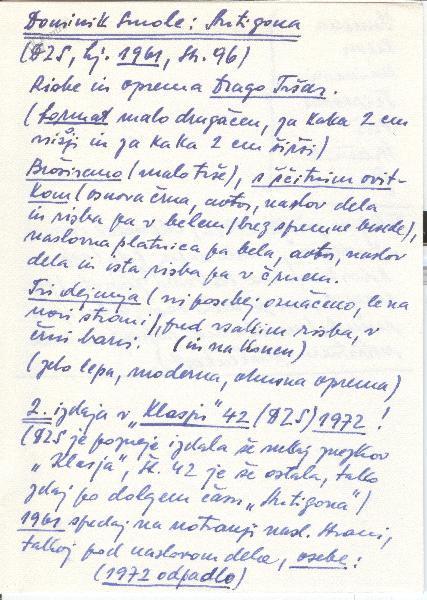 Dominik Smole: Antigona
(DZS, Lj. 1961, str. 96)
Risbe in oprema Drago Tršar.
(format malo drugačen, za kaka 2 cm
višji in za kaka 2 cm širši)
Broširano (malo trše), s ščitnim ovit-
kom (osnova črna, avtor, naslov dela
in risba pa v belem (brez spremne besede),
naslovna platnica pa bela, avtor, naslov
dela in ista risba pa v črnem.
Tri dejanja (ni posebej označeno, le na
novi strani), pod vsakim risba, v
črni barvi. (in na koncu)
(zelo lepa, moderna, okusna oprema)
2. izdaja v "Klasju" 42 (DZS) 1972!
(DZS je pozneje izdala še nekaj zvezkov
"Klasja", št. 42 je še ostala, tako
zdaj po dolgem času "Antigona")
1961 spredaj na notranji nasl. strani,
takoj pod naslovom dela, osebe:
(1972 odpadlo)